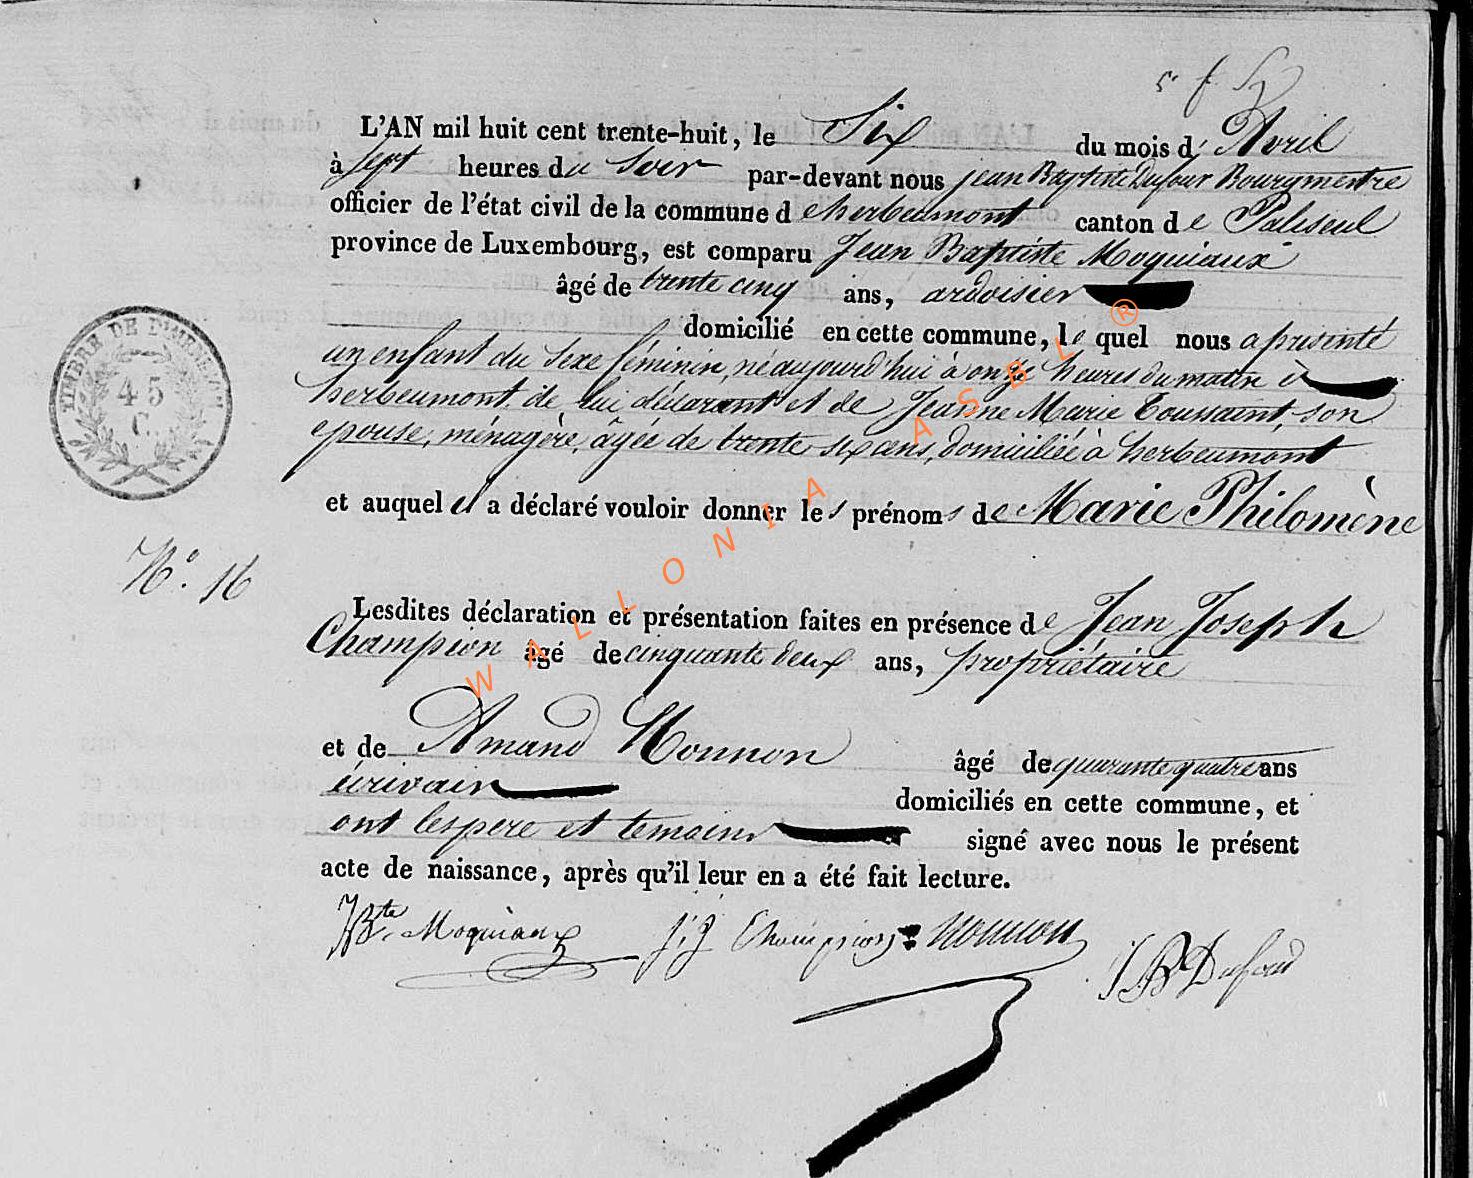 L'AN mil huit cent trente-huit, le Six du mois d' Avril
à sept heures du soir par-devant nous jean Baptiste Dufour Bourgmestre
officier de l'état civil de la commune de herbeumont canton de Paliseul
province de Luxembourg, est comparu Jean Baptiste Moquiaux
âgé de trente cinq ans, ardoisier
domicilié en cette commune, le quel nous a présenté
un enfant du sexe féminin, né aujourd'hui à onze heures du matin à
herbeumont, de lui déclarant et de Jeanne Marie Toussaint, son
epouse, ménagère, âgée de trente six ans, domiciliée à herbeumont
et auquel il a déclaré vouloir donner les prénoms de Marie Philomène
N.° 16
Lesdites déclaration et présentation faites en présence de Jean Joseph
Champion âgé de cinquante deux ans, propriétaire
et de Amand Nonnon âgé de quarante quatre ans
écrivain domiciliés en cette commune, et
ont les pere et temoins signé avec nous le présent
acte de naissance, après qu'il leur en a été fait lecture.
JBte Moquiaux J:J Champion Nonnon JB Dufour
TIMBRE DE DIMENSION
45
C.
WALLONIA ASBL ®